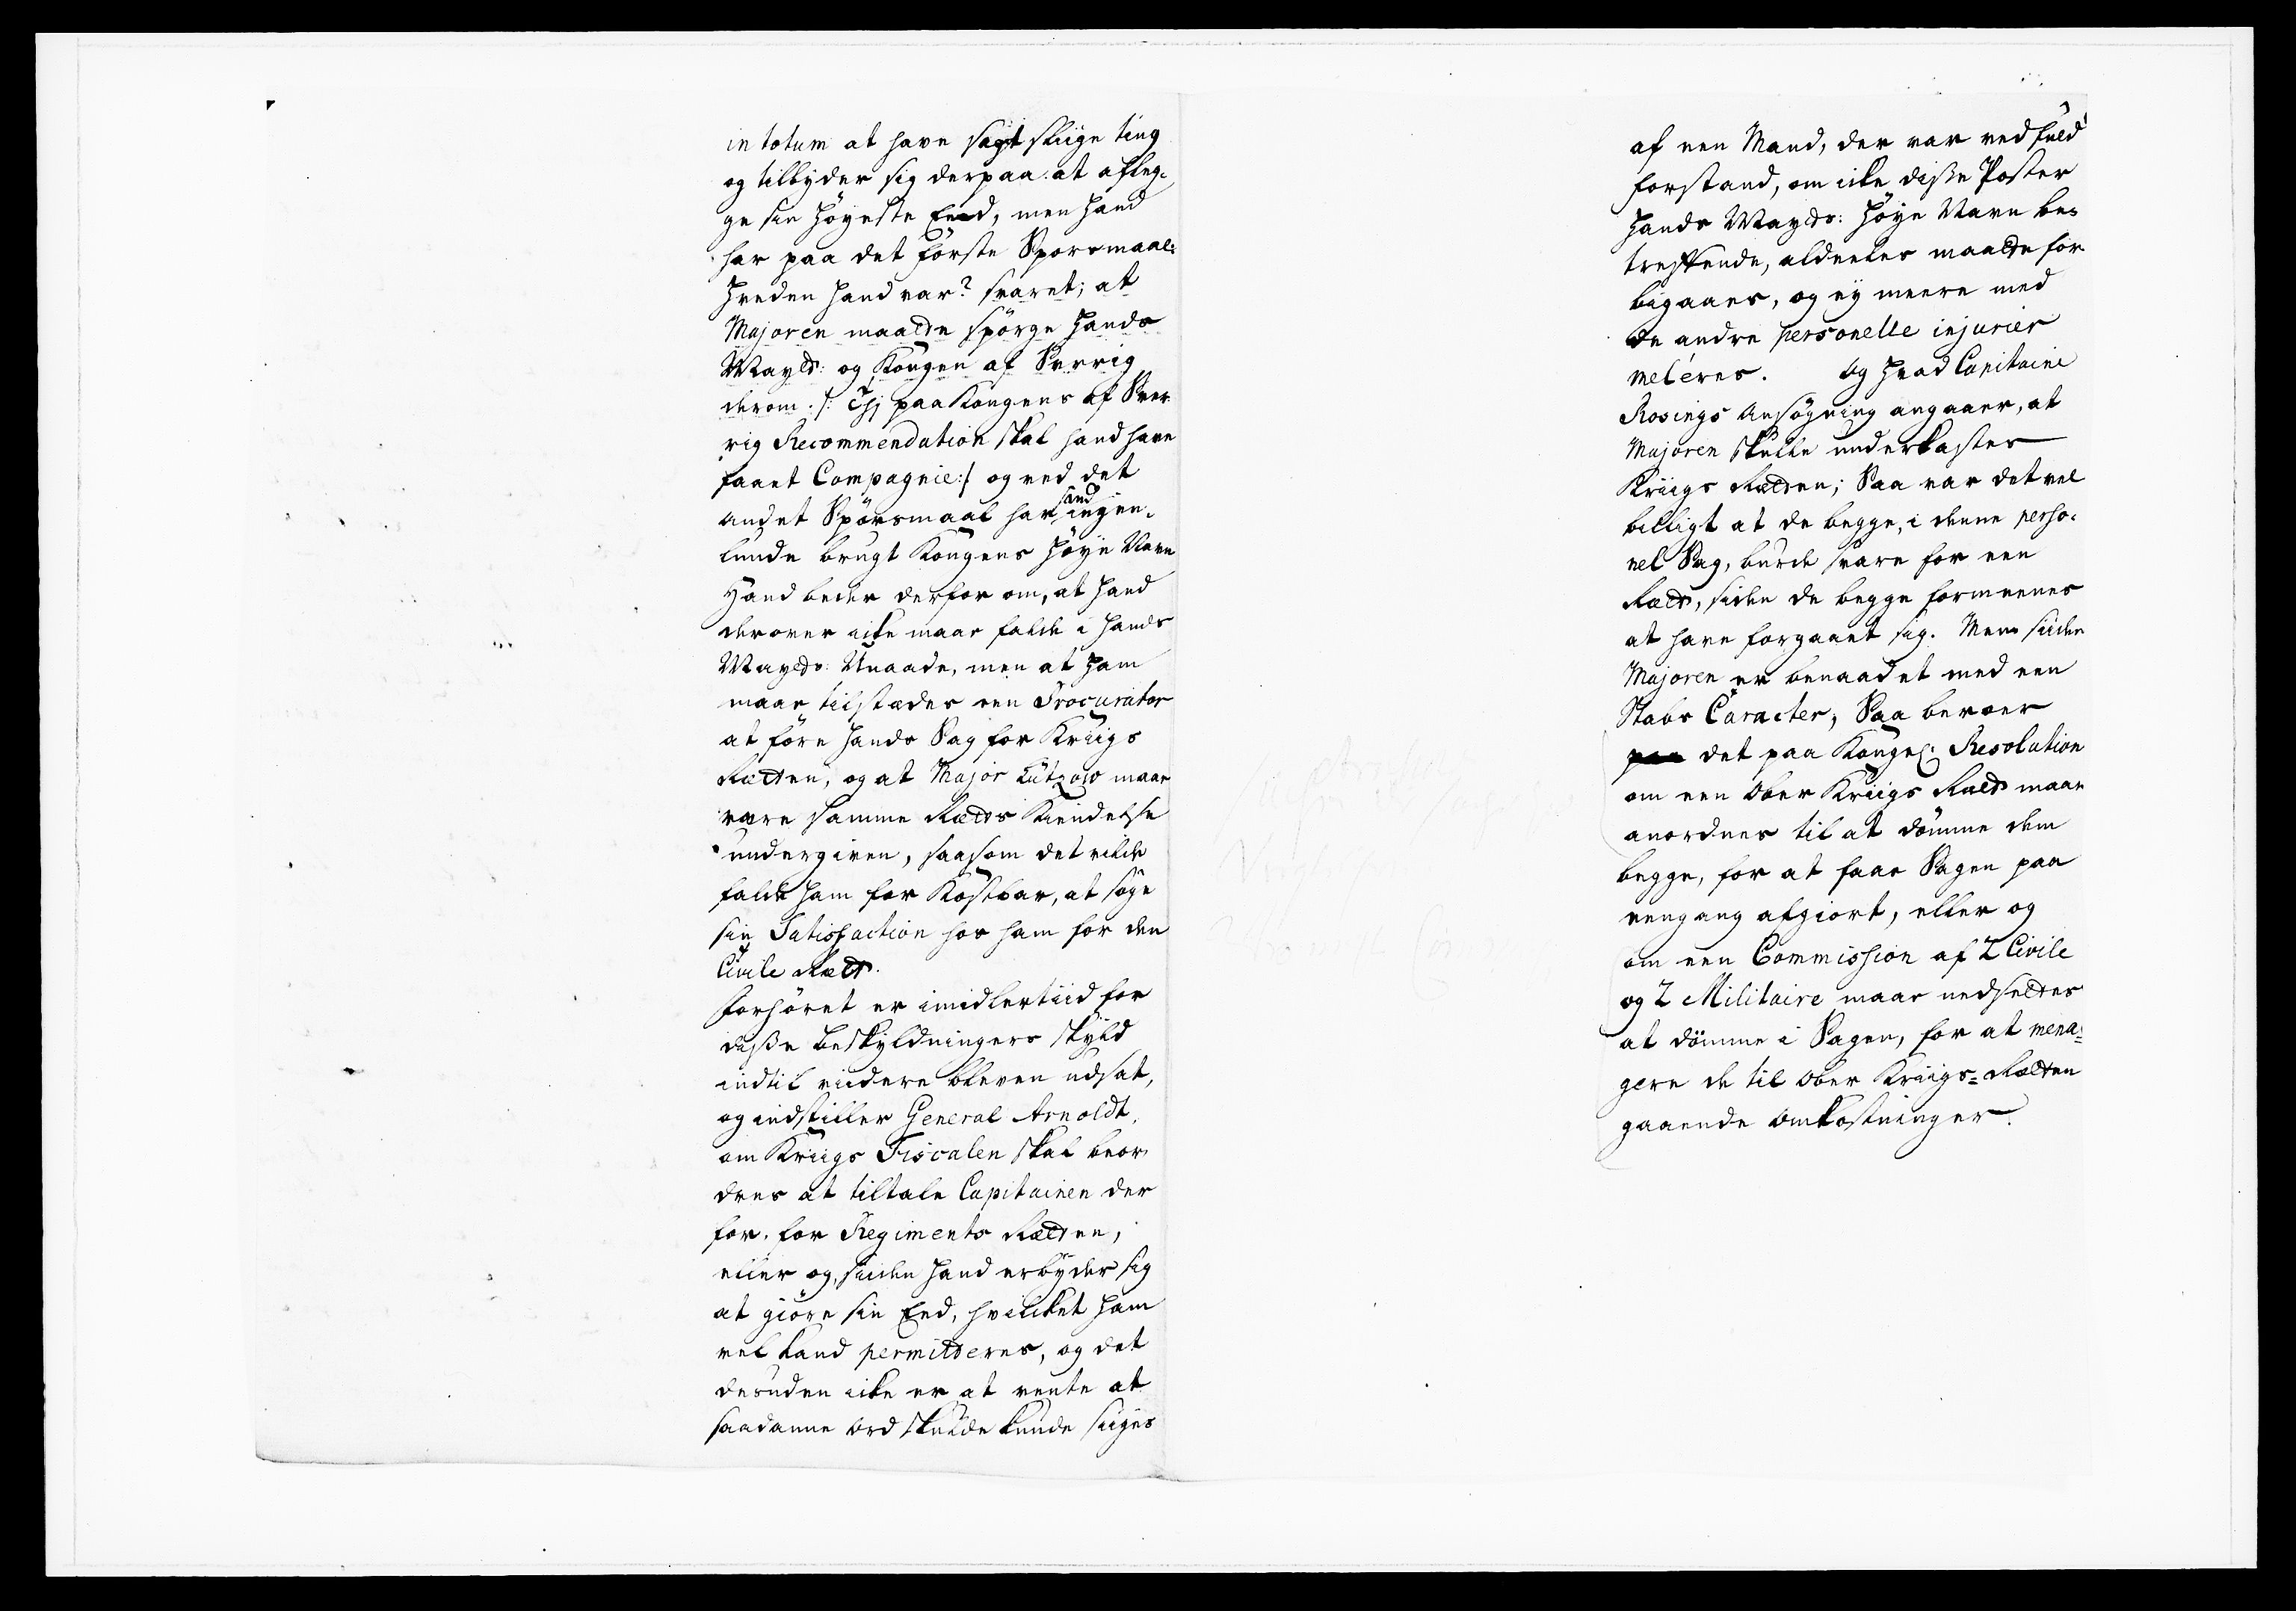 in totum at have sagt sliige ting
og tilbyder sig derpaa at afleg-
ge sin höyeste Eed, men hand
har paa det förste Spørsmaal:
hveden hand var? svaret; at
Majoren maatte spörge hands
Mayts: og Kongen af Sverrig
derom /: Thj paa Kongens af Sver
rig Recommendation skal hand have
faaet Compagnie :/ og ved det
andet Spörsmaal har hand ingen-
lunde brugt Kongens höye Navn
Hand beder derfor om, at hand
derover icke maae falde i hands
Mayts: Unaade, men at ham
maae tilstædes een Procurator
at före hands Sag for Kriigs
Rætten, og at Major Lützow maae
være samme Rætts Kiendelse
undergiven, saasom det vilde
falde ham for Kostbar, at söge
sin Satisfaction hos ham for den
Civile Rætt.
Forhöret er imidlertiid for
disse beskyldningers skyld
indtil viidere bleven udsat,
og indstiller General Arnoldt,
om Kriigs Fiscalen skal beor
dres at tiltale Capitainen der
for, for Regiments Rætten,
eller og, siiden hand erbyder sig
at giöre sin Eed, hvilcket ham
vel kand permitteres, og det
desuden icke er at vente at
saadanne ord skulde kunde siiges
af een Mand, der var ved fuld
forstand, om icke disse Poster
hands Mayts: höye Navn be-
treffende, aldeeles maatte for
bigaaes, og ey meere med
de andre personelle injurier
meleres. Og hvad Capitaine
Rosings Ansögning angaaer, at
Majoren skulle underkastes
Kriigs Rætten; Saa var det vel
billigt at de begge, i denne perso-
nel Sag, burde svare for een
Rætt, siden de begge formeenes
at have forgaaet sig. Men siiden
Majoren er benaadet med een
Stabs Caracter, Saa beroer
paa det paa Kongel: Resolution
om een Ober Kriigs Rætt maae
anordnes til at dömme dem
begge, for at faae Sagen paa
eengang afgiort, eller og
om een Commission af 2 Civile
og 2 Militaire maae nedsettes
at dömme i Sagen, for at mena-
gere de til Ober Kriigs-Rætten
gaaende Omkostninger.